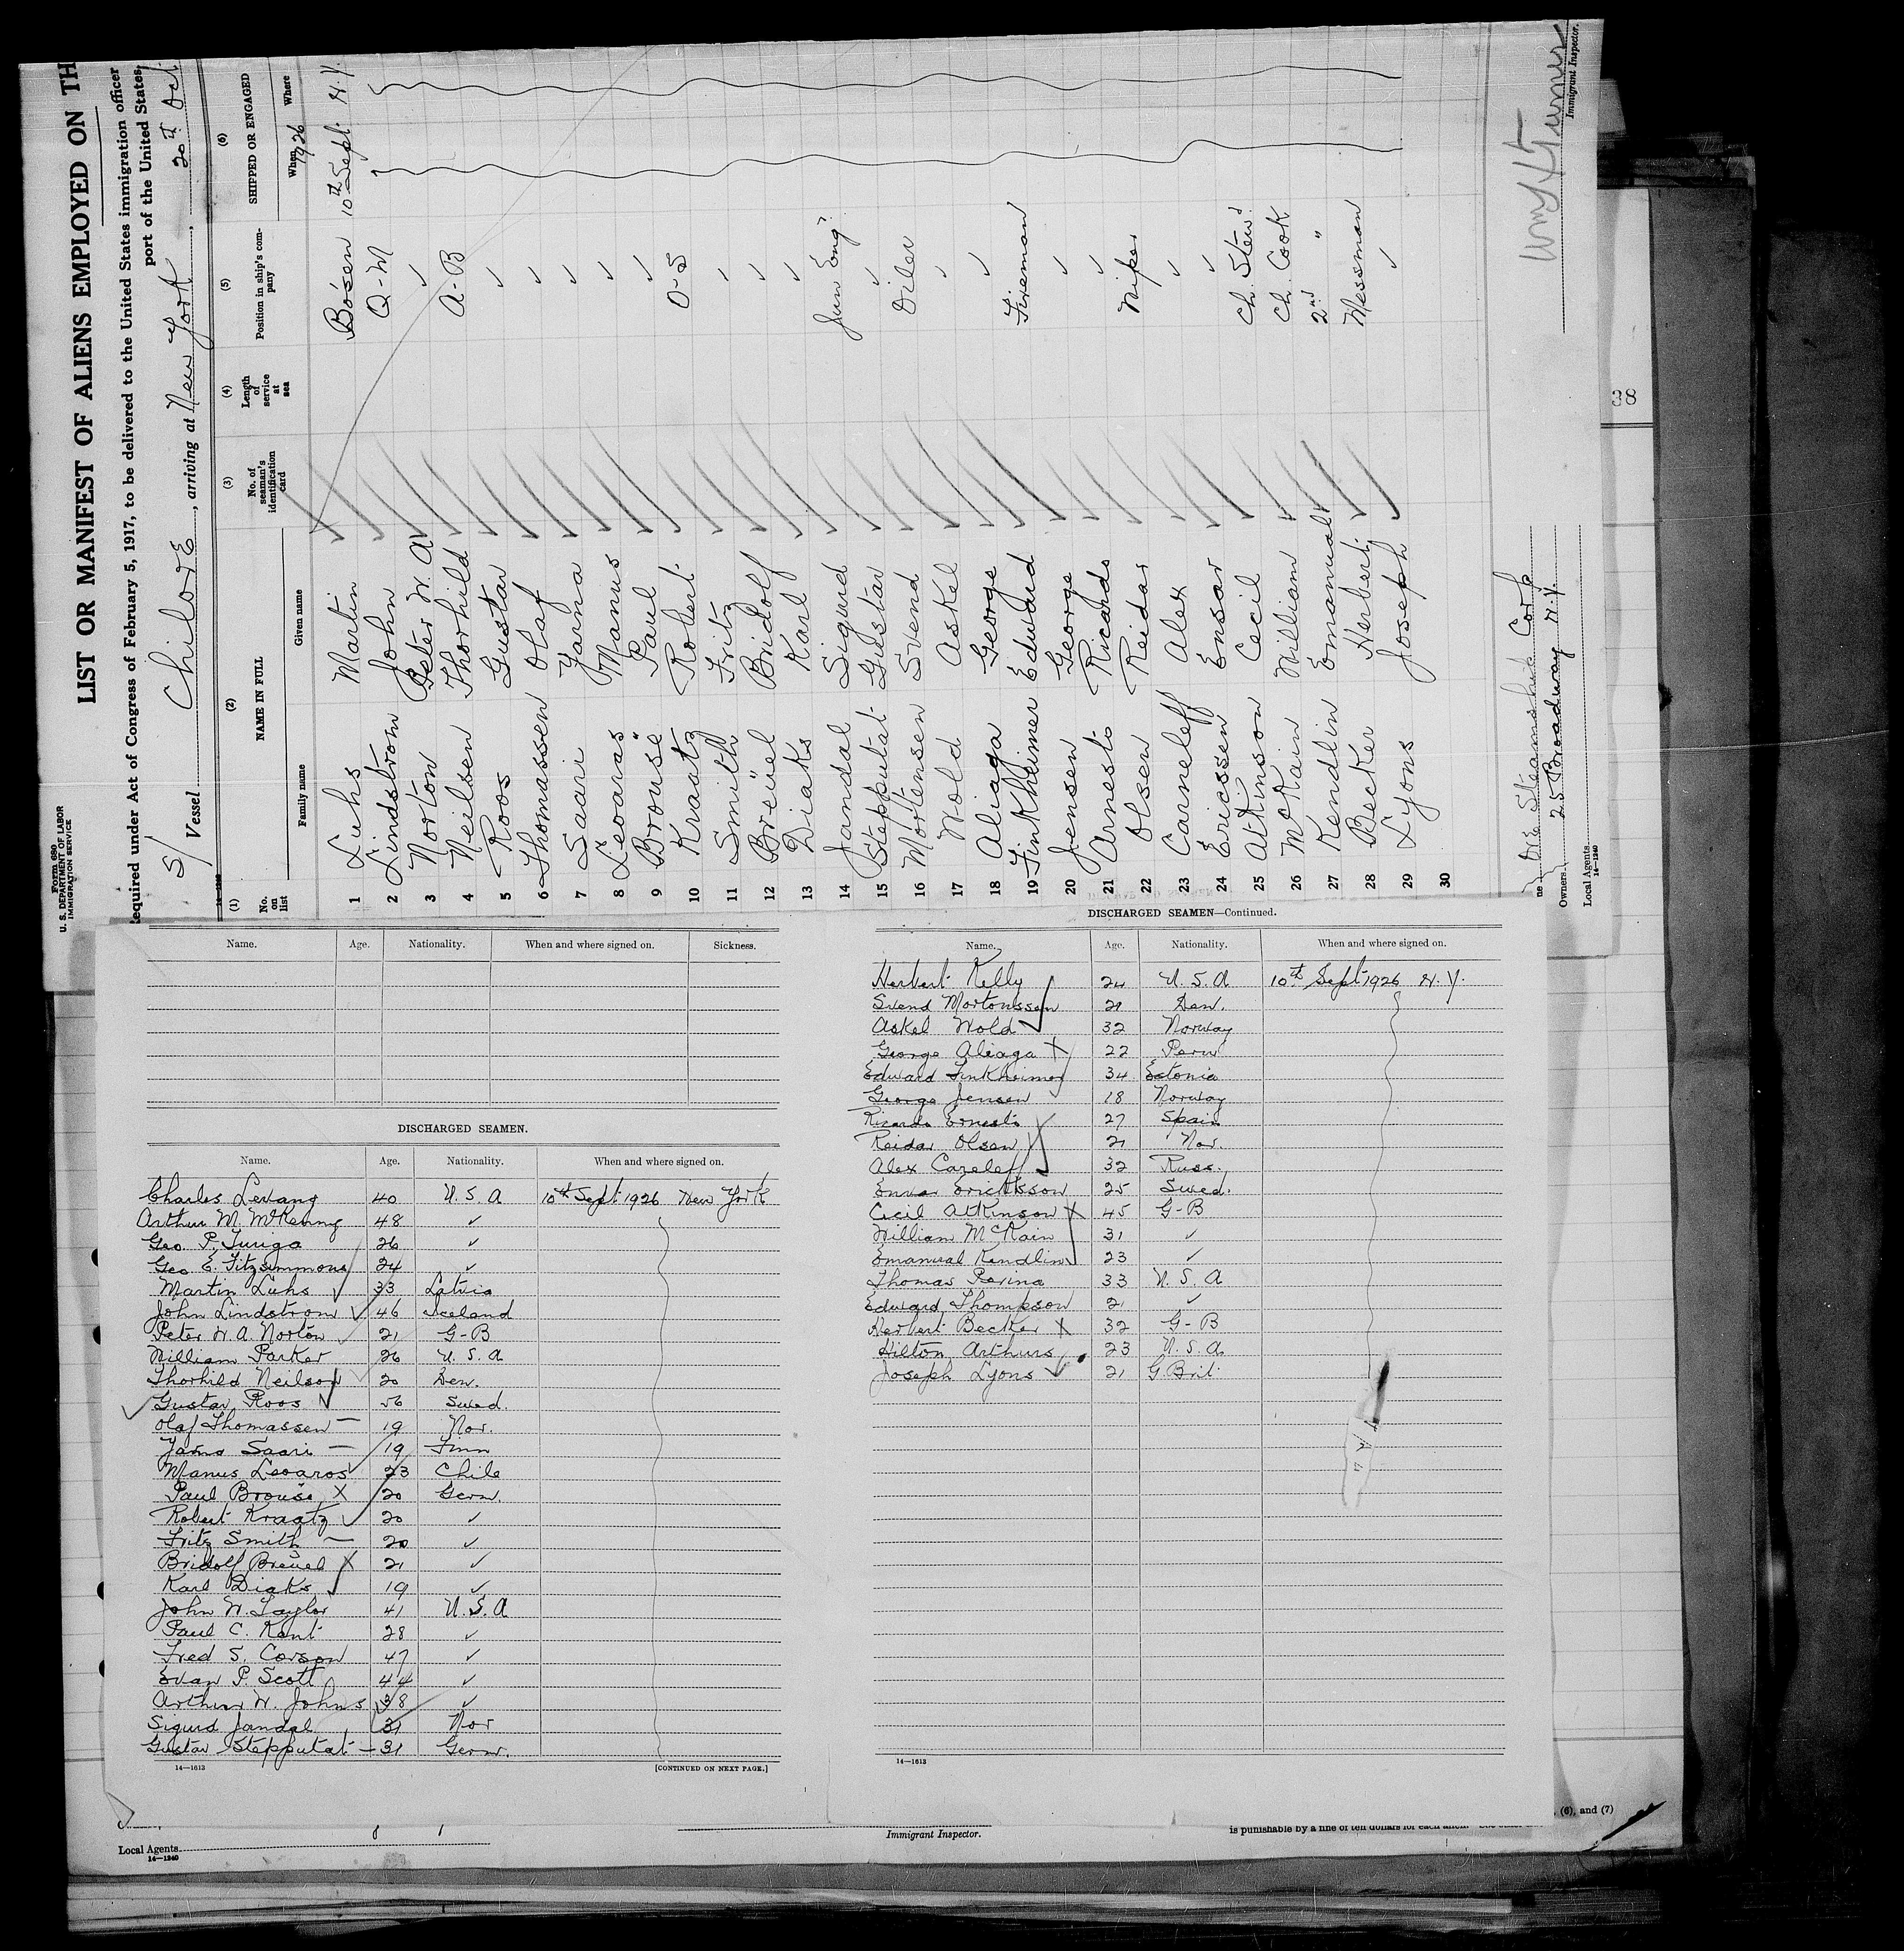 Form 680
U. S. DEPARTMENT OF LABOR
IMMIGRATION SERVICE
LIST OR MANIFEST OF ALIENS EMPLOYED ON TH
equired under Act of Congress of February 5, 1917, to be delivered to the United States immigration officer
port of the United States
S/ Vessel Chilore, arriving at New York, 20th Oct.
(1) (2) (3) (4) (5) (6)
No. on list NAME IN FULL No. of seaman's identification card Length of service at sea Position in ship's company SHIPPED OR ENGAGED
Family name Given name When 1926 Where
1 Luhs Martin Bosen 10th Sept. N.Y.
2 Lindstrom John Q-M
3 Norton Peter W. A ✓
4 Neilsen Thorhild A-B
5 Roos Gustav ✓
6 Thomassen Olaf ✓
7 Saari Yarna ✓
8 Leoaras Manus ✓
9 Brousë Paul ✓
10 Kraatz Robert O-S
11 Smith Fritz ✓
12 Breüel Bridolf ✓
13 Diaks Karl ✓
14 Jandal Sigurd Jun Eng'r
15 Stepputat Gustav ✓
16 Mortensen Svend Oiler
17 Wold Askel ✓
18 Aliaga George ✓
19 Finkheimer Edward Fireman
20 Jensen George ✓
21 Arnesto Ricardo ✓
22 Olsen Reidar Wiper
23 Carneleff Alex ✓
24 Ericssen Ensar ✓
25 Atkinson Cecil Ch. Stew'd
26 McKain William Ch. Cook
27 Kendlin Emanual 2nd "
28 Becker Herbert Messman
29 Lyons Joseph ✓
30
Ore Steamship Corp
Owners 25 Broadway N.Y.
Local Agents
14—1240
Immigrant Inspector.
38
Name. Age. Nationality. When and where signed on. Sickness.
DISCHARGED SEAMEN.
Name. Age. Nationality. When and where signed on.
Charles Levang 40 U.S.A 10th Sept 1926 New York
Arthur M. McKenny 48 ✓
Geo. P. Turiga 26 ✓
Geo E. Fitzsimmons 24 ✓
Martin Luhs 33 Latvia
John Lindstrom 46 Iceland
Peter W. A. Norton 21 G-B
William Parker 26 U.S.A
Thorhild Neilson 20 Den.
Gustav Roos 56 Swed.
Olaf Thomassen 19 Nor.
Yarna Saari 19 Finn
Manus Leoaros 23 Chile
Paul Brousë X 20 Germ.
Robert Kraatz 20 ✓
Fritz Smith 20 ✓
Bridolf Breüel X 21 ✓
Karl Diaks 19 ✓
John W. Taylor 41 U.S.A
Paul C. Kent 28 ✓
Fred S. Corson 47 ✓
Evan P. Scott 44 ✓
Arthur W. Johns 38 ✓
Sigurd Jandal 31 Nor
Gustav Stepputat 31 Germ.
14—1613
[CONTINUED ON NEXT PAGE.]
DISCHARGED SEAMEN—Continued.
Name. Age. Nationality. When and where signed on.
Herbert Kelly 24 U.S.A 10th Sept 1926 N.Y.
Svend Mortonssen 21 Den.
Askel Wold 32 Norway
George Aliaga X 22 Peru
Edward Finkheimer 34 Estonia
George Jensen 18 Norway
Ricardo Ernesto 27 Spain
Reidar Olsen 21 Nor.
Alex Carelef 32 Russ.
Ensar Ericksson 25 Swed.
Cecil Atkinson X 45 G-B
William McKain 31 ✓
Emanual Kendlin 23 ✓
Thomas Perina 33 U.S.A
Edward Thompson 21 ✓
Herbert Becker X 32 G-B
Hilton Arthurs 23 U.S.A.
Joseph Lyons 21 G.Brit.
14—1613
(6), and (7)
Local Agents
14—1240
Immigrant Inspector.
is punishable by a fine of ten dollars for each alien.